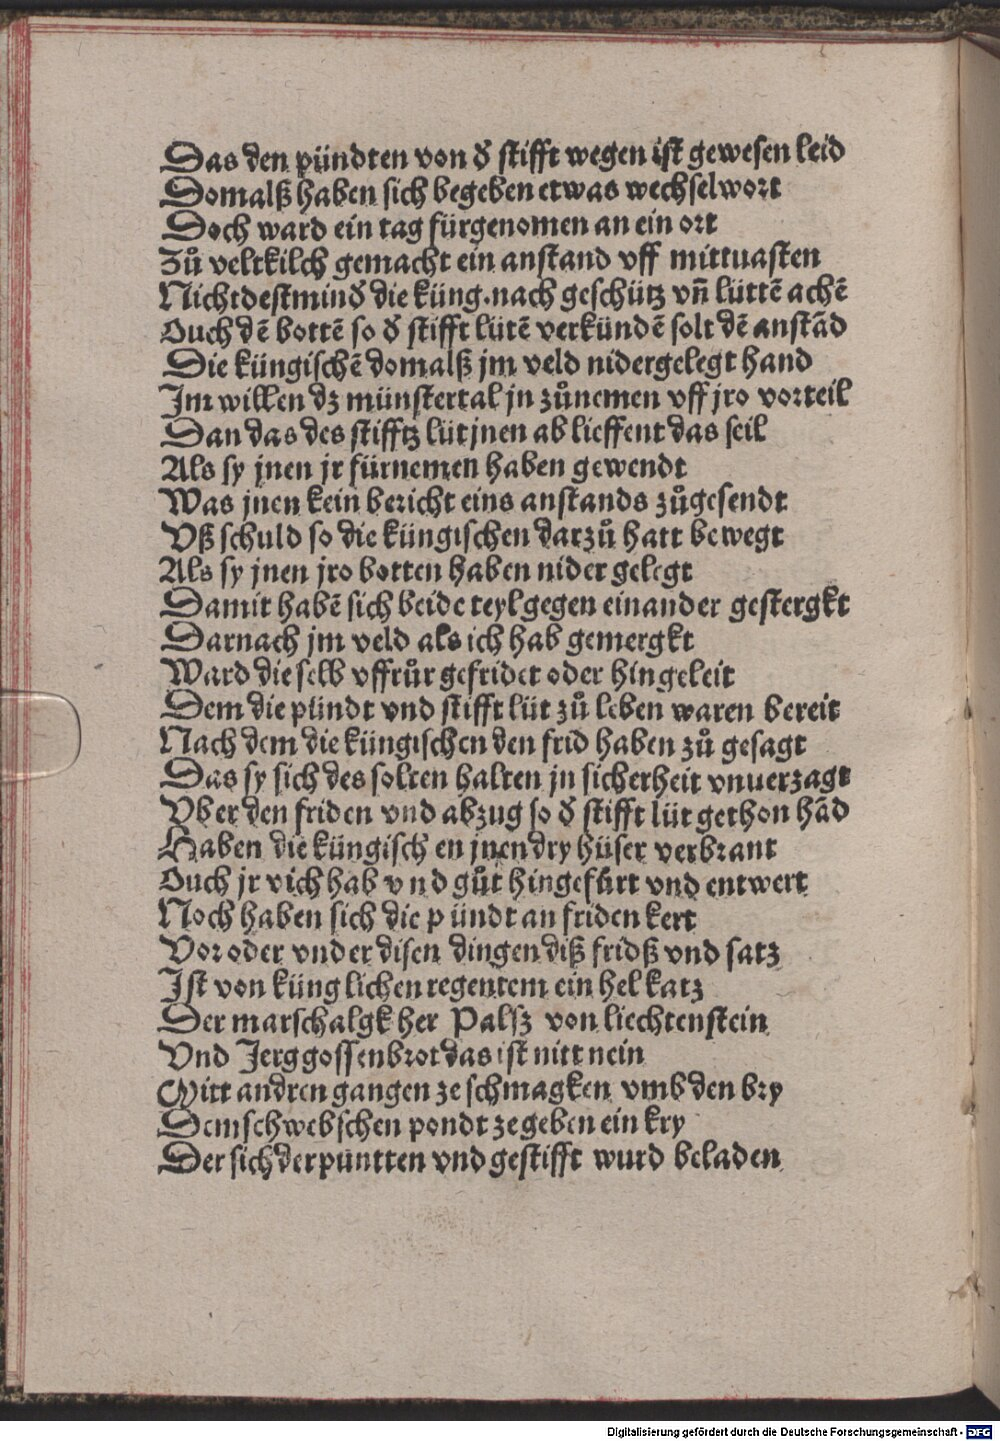 Das den pündten von d̕ stifft wegen ist gewesen leid
Domalß haben sich begeben etwas wechselwort
Doch ward ein tag fürgenomen an ein ort
Zů veltkilch gemacht ein anstand vff mittuasten
Nichtdestmind̕ die küng.nach geschütz vn̄ lüttē achē
Ouch dē bottē so d̕ stifft lütē verkündē solt dē anstād
Die küngischē domalß jm veld nidergelegt hand
Im willen dz münstertal jn zůnemen vff jro vorteil
Dan das des stifftz lüt jnen ab lieffent das seil
Als sy jnen jr fürnemen haben gewendt
Was jnen kein bericht eins anstands zůgesendt
Vß schuld so die küngischen darzů hatt bewegt
Als sy jnen jro botten haben nider gelegt
Damit habē sich beide teyl gegen einander gestergkt
Darnach jm veld als ich hab gemergkt
Ward die selb vffrůr gefridet oder hingeleit
Dem die pündt vnd stifft lüt zů leben waren bereit
Nach dem die küngischen den frid haben zů gesagt
Das sy sich des solten halten jn sicherheit vnuerzagt
Vber den friden vnd abzug so d̕ stifft lüt gethon hād
Haben die küngisch en jnen dry hüser verbrant
Ouch jr vich hab vnd gůt hingefürt vnd entwert
Noch haben sich die pündt an friden kert
Vor oder vnder disen dingen diß fridß vnd satz
Ist von künglichen regentem ein hel katz
Der marschalgk her Palsz von liechtenstein
Vnd Jerg gossenbrot das ist nitt nein
Mitt andren gangen ze schmagken vmb den bry
Dem schwebschen pondt ze geben ein kry
Der sich der püntten vnd gestifft wurd beladen
Digitalisierung gefördert durch die Deutsche Forschungsgemeinschaft - DFG